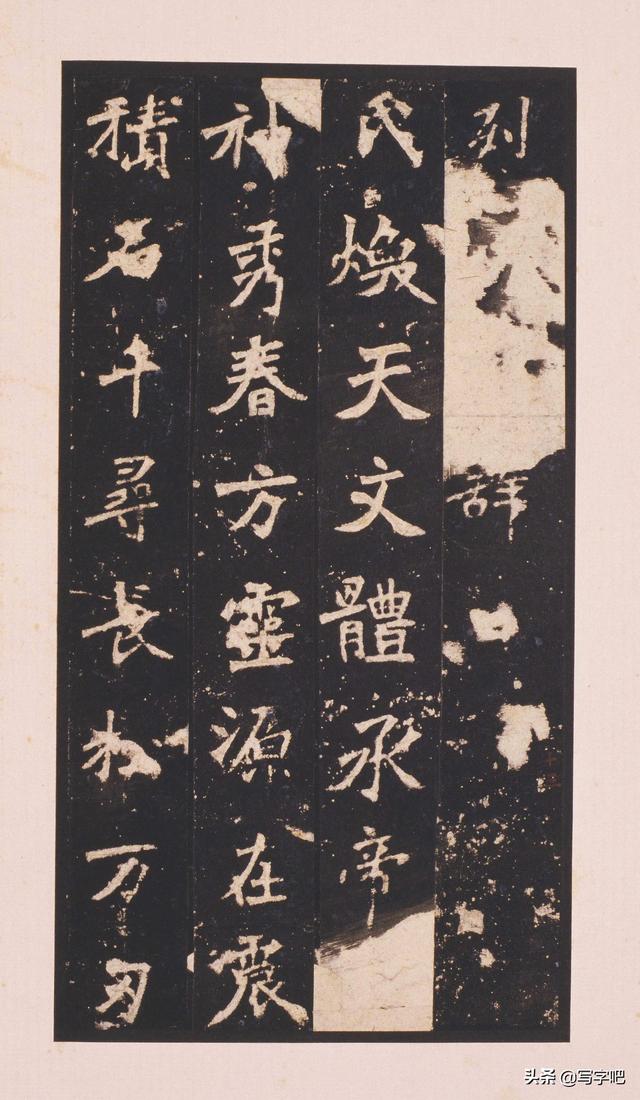 列辞
氏煥天文體承帝
神秀春方靈源在震
積石千尋長松万刃
头条 @写字吧